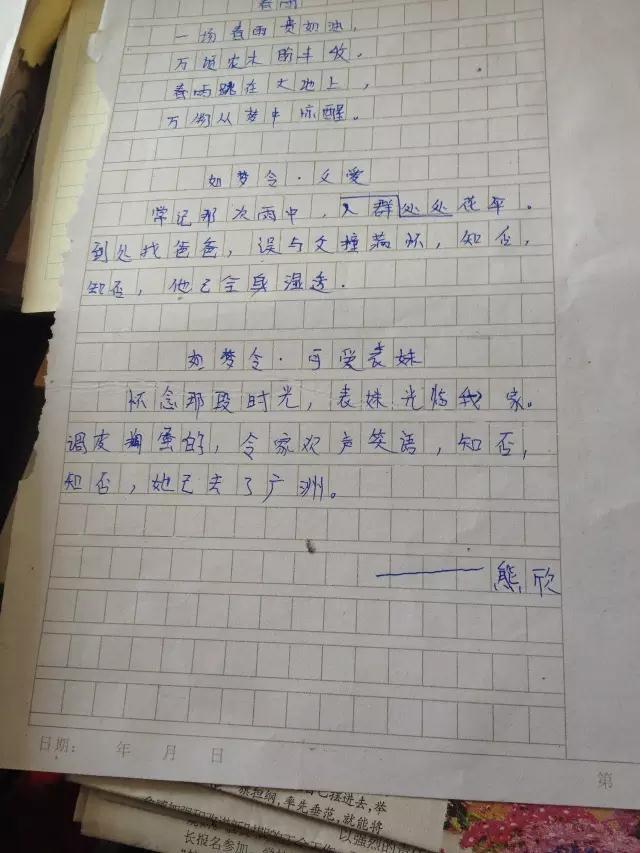 春雨
一场春雨贵如油，
万顷农木盼丰收。
春雨跳在大地上，
万物从梦中惊醒。
如梦令·父爱
常记那次雨中，人群处处花伞。
到处找爸爸，误与父撞满怀，知否，
知否，他已全身湿透.
如梦令·可爱表妹
怀念那段时光，表妹光临我家。
调皮捣蛋的，令家欢声笑语，知否，
知否，她已去了广洲。
——熊欣
日期： 年 月 日
第
长报名参加
率先垂范，就能将